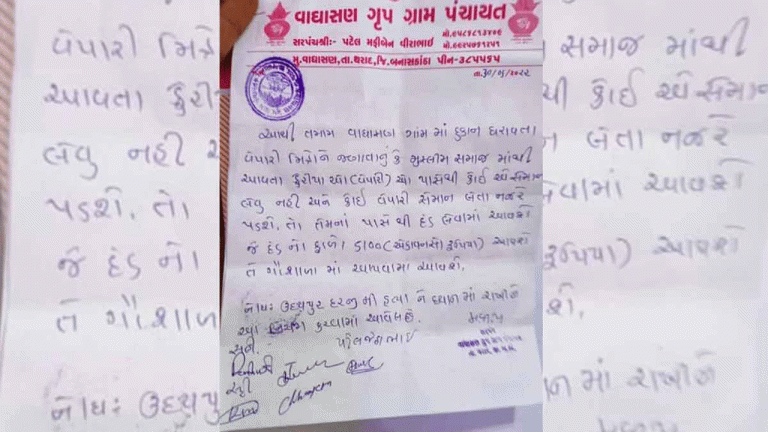 વાઘાસણ ગૃપ ગ્રામ પંચાયત
સરપંચશ્રી:- પટેલ મફીબેન વીરાભાઈ
મુ.વાઘાસણ,તા.થરાદ,જિ.બનાસકાંઠા પીન-૩૮૫૫૬૫
આથી તમામ વાઘાસણ ગામ માં દુકાન ધરાવતા
વેપારી મિત્રોને જણાવાનું કે મુસ્લીમ સમાજ માંથી
આવતા ફેરીયા આ (વેપારી) ઓ પાસેથી કોઈ એ સામાન
લેવુ નહી અને કોઈ વેપારી સામાન લેતા નજરે
પડશે. તો તેમના પાસે થી દંડ લેવામાં આવશે
જે દંડ નો ફાળો 5100 (એકાવનસો રૂપિયા) આવશે
તે ગૌશાળા માં આપવામાં આવશે.
નોધ: ઉદયપુર દરજી ની હત્યા ને ધ્યાન માં રાખીને
આ કરવામાં આવેલ છે.
સહી.